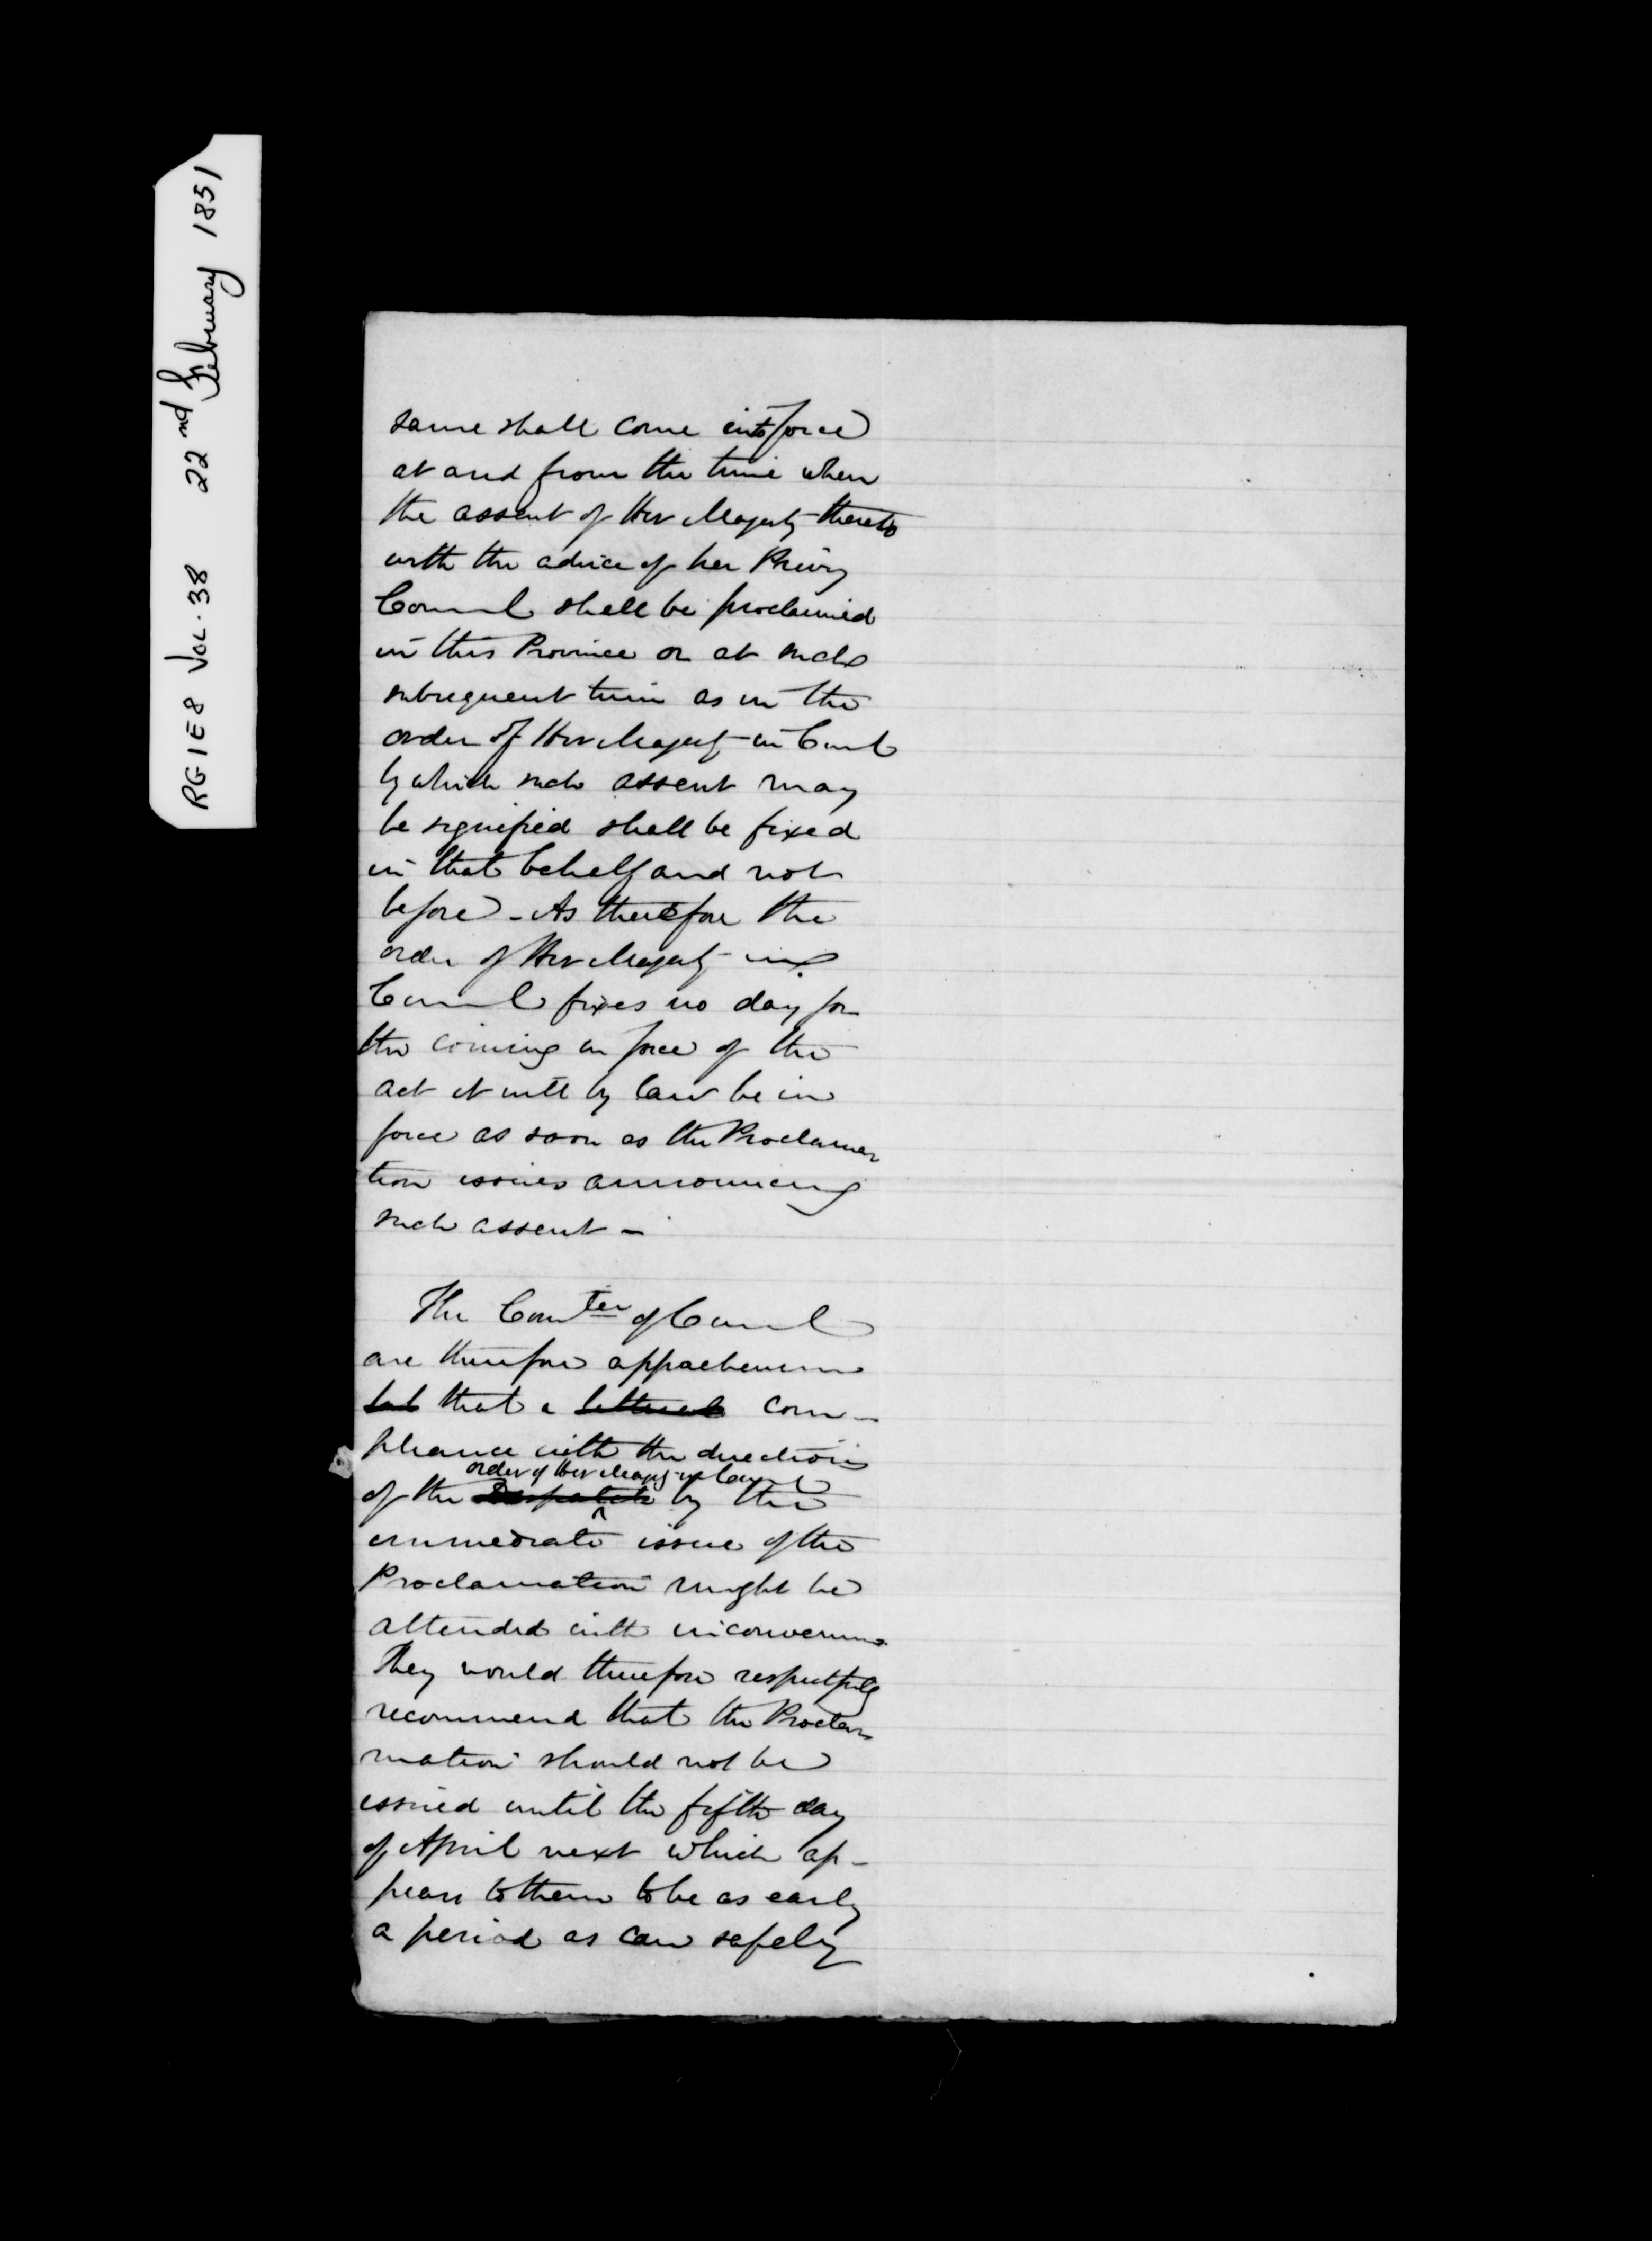 RG1E8 VOL. 38 22nd February 1851
same shall come into force
at and from the time when
the assent of Her Majesty thereto
with the advice of her Privy
Council shall be proclaimed
in this Province or at such
subsequent time as in the
order of Her Majesty in Council
by which such assent may
be signified shall be fixed
in that behalf and not
before - As therefore the
order of Her Majesty in
Council fixes no day for
the coming in force of the
act it will by law be in
force as soon as the Proclama
tion issues announcing
such assent -
The Comtee of Council
are therefore apprehensive
that a literal com-
pliance with the directions
order of Her Majesty in Council
of the Despatch by the
immediate issue of the
Proclamation might be
attended with inconvenience
They would therefore respectfully
recommend that the Procla
mation should not be
issued until the fifth day
of April next which ap-
pears to them to be as early
a period as can safely